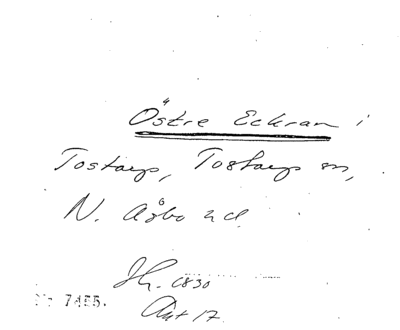 Östre Eckran i
Tostarp, Tostarps sn,
N. Åsbo hd.
Jh. 1830
Ant 17.
Nr 7455.